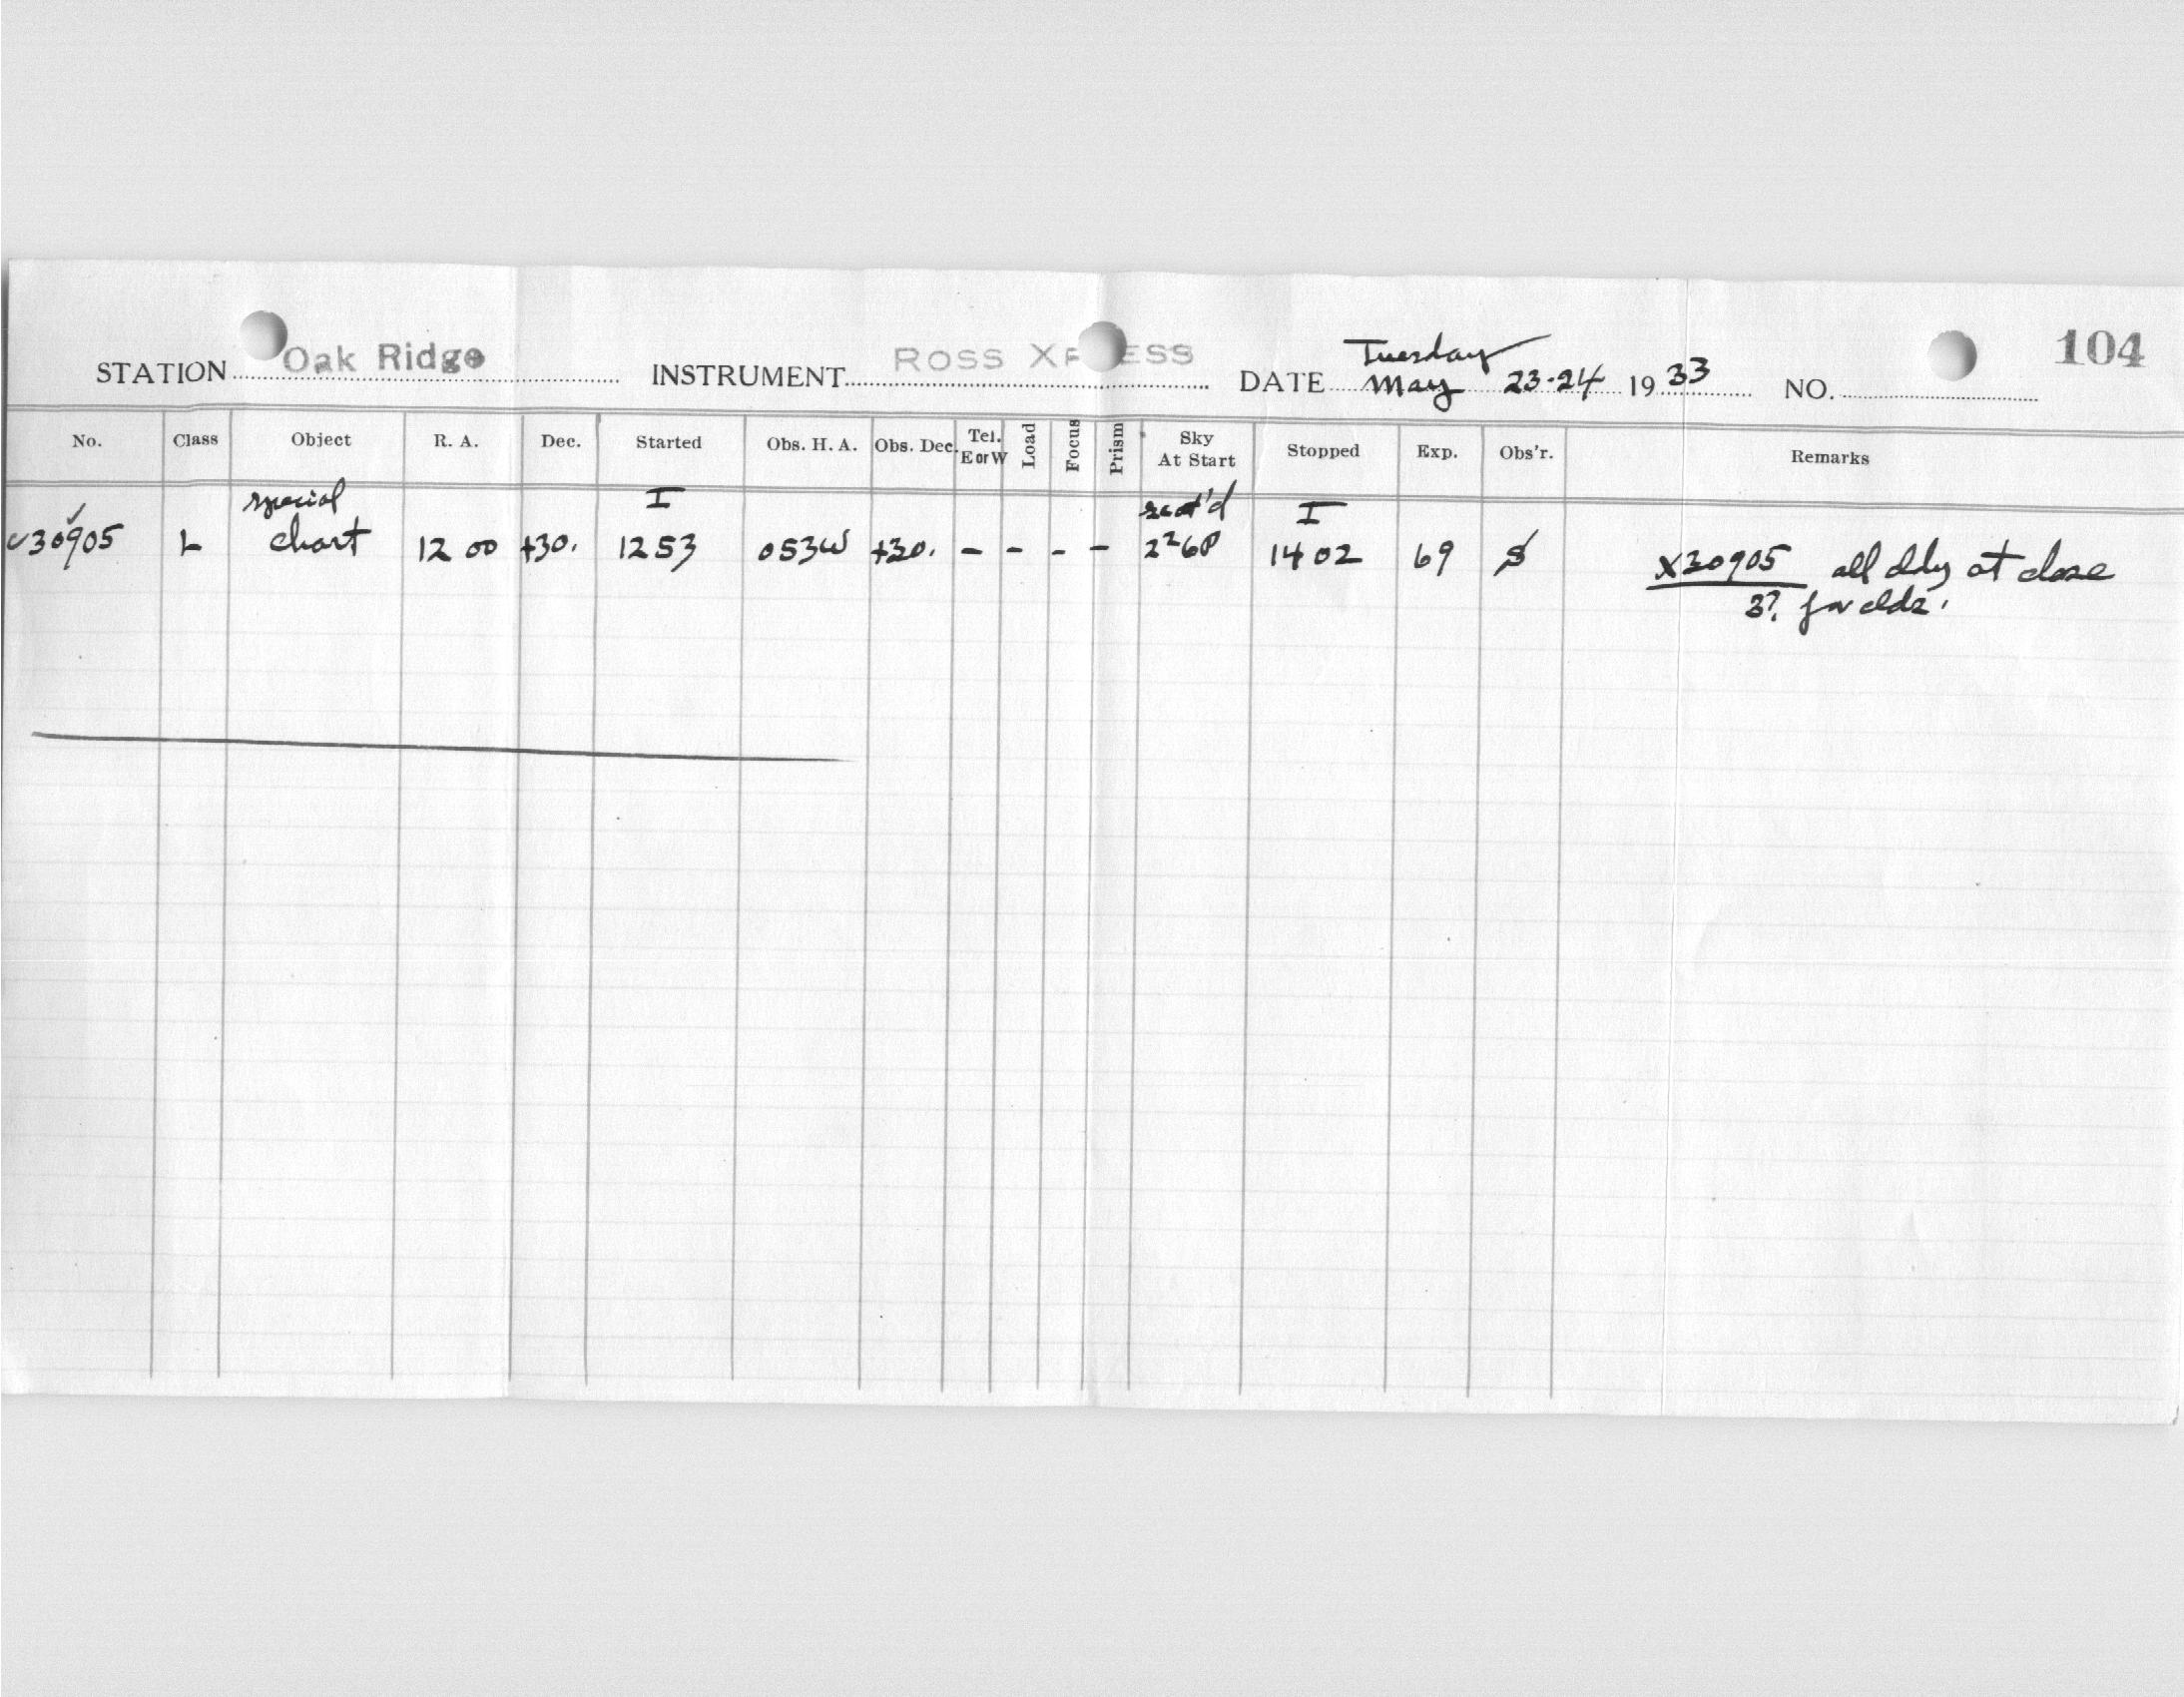 104
STATION Oak Ridge INSTRUMENT ROSS XP ESS DATE Tuesday May 23-24 1933 NO.
No. Class Object R. A. Dec. Started Obs. H. A. Obs. Dec. Tel. E or W Load Focus Prism Sky At Start Stopped Exp. Obs'r. Remarks
special I I
30905 L chart 12 00 +30. 12 53 053W +30. - - - - 2 14 02 69 X30905 all at close
3? for